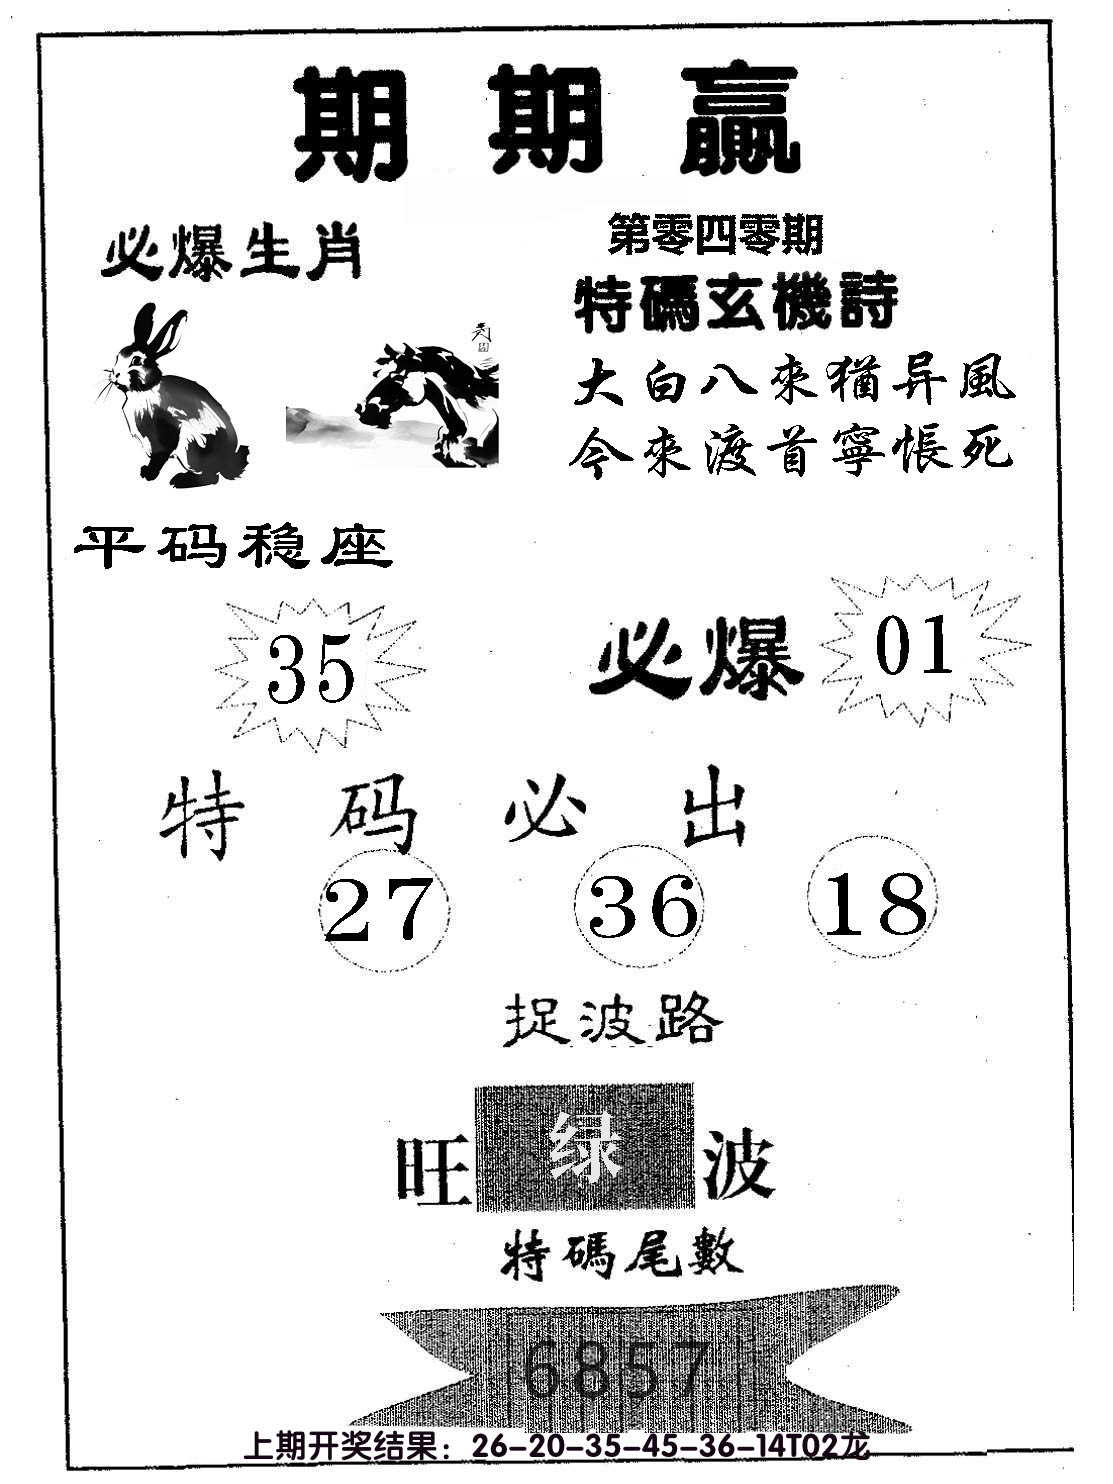 期期赢
必爆生肖
第零四零期
特碼玄機詩
大白八來猶异風
今來渡首寧悵死
平码稳座
35
必爆
01
特码必出
27 36 18
捉波路
旺 绿 波
特碼尾數
6857
上期开奖结果：26-20-35-45-36-14T02龙